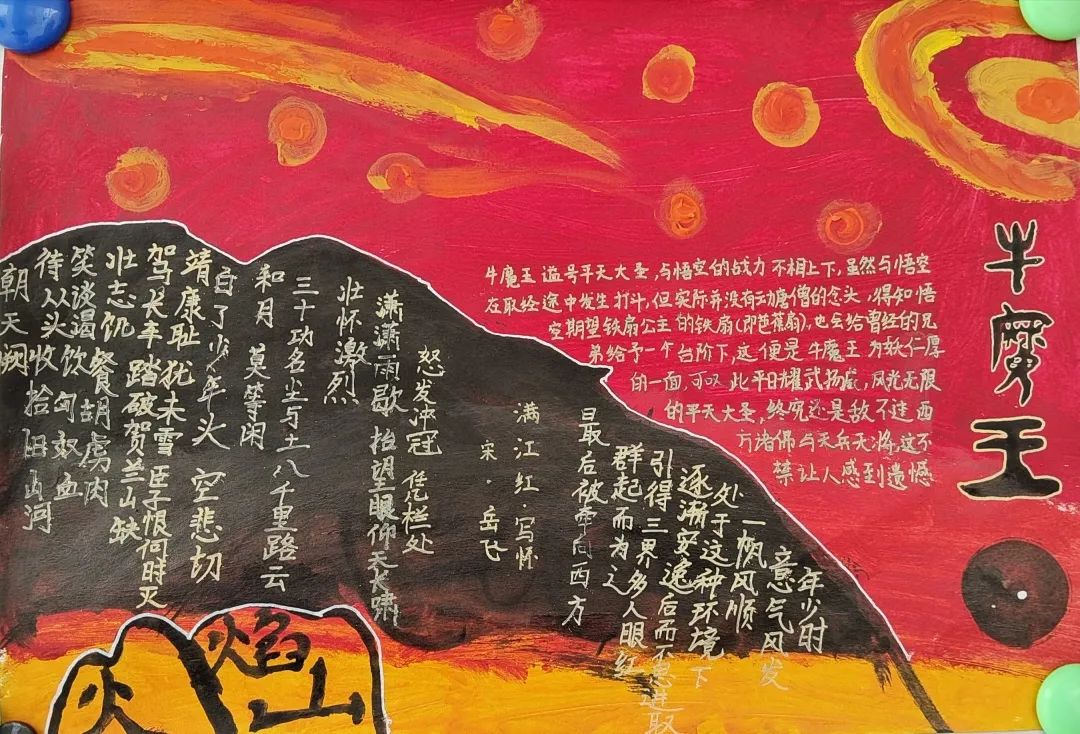 牛魔王
牛魔王 谥号平天大圣,与悟空的战力 不相上下,虽然与悟空
在取经途中发生打斗,但实际并没有动唐僧的念头,得知悟
空期望铁扇公主的铁扇(即芭蕉扇),也会给曾经的兄
弟给予一个台阶下,这便是牛魔王 为软仁厚
的一面,可叹 此平日耀武扬威,风光无限
的平天大圣,终究还是敌不过西
方诸佛与天兵天将,这不
禁让人感到遗憾
年少时
意气风发
一帆风顺
处于这种环境下
逐渐安逸后而不思进取
引得三界多人眼红
群起而为之
最后被牵向西方
满江红·写怀
宋·岳飞
怒发冲冠 凭栏处
潇潇雨歇 抬望眼仰天长啸
壮怀激烈
三十功名尘与土八千里路云
和月 莫等闲
白了少年头 空悲切
靖康耻犹未雪 臣子恨何时灭
驾长车踏破贺兰山缺
壮志饥餐胡虏肉
笑谈渴饮匈奴血
待从头收拾旧山河
朝天阙
火焰山